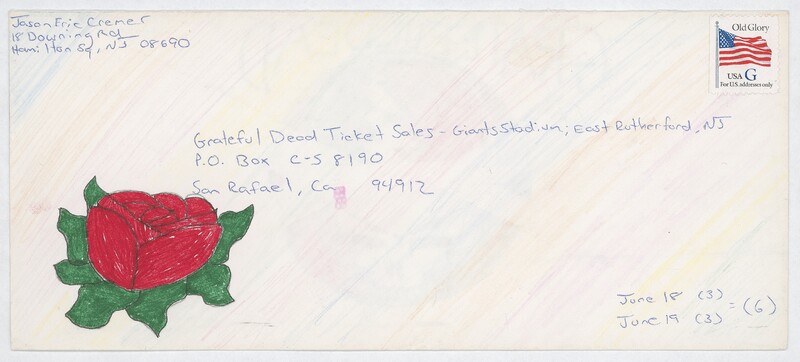 Jason Eric Cremer
18 Downing Rd
Hamilton Sq, NJ 08690
Old Glory
USA G
For U.S. addresses only
Grateful Dead Ticket Sales - Giants Stadium; East Rutherford, NJ
P.O. Box C-S 8190
San Rafael, Ca 94912
June 18 (3)
June 19 (3) = (6)